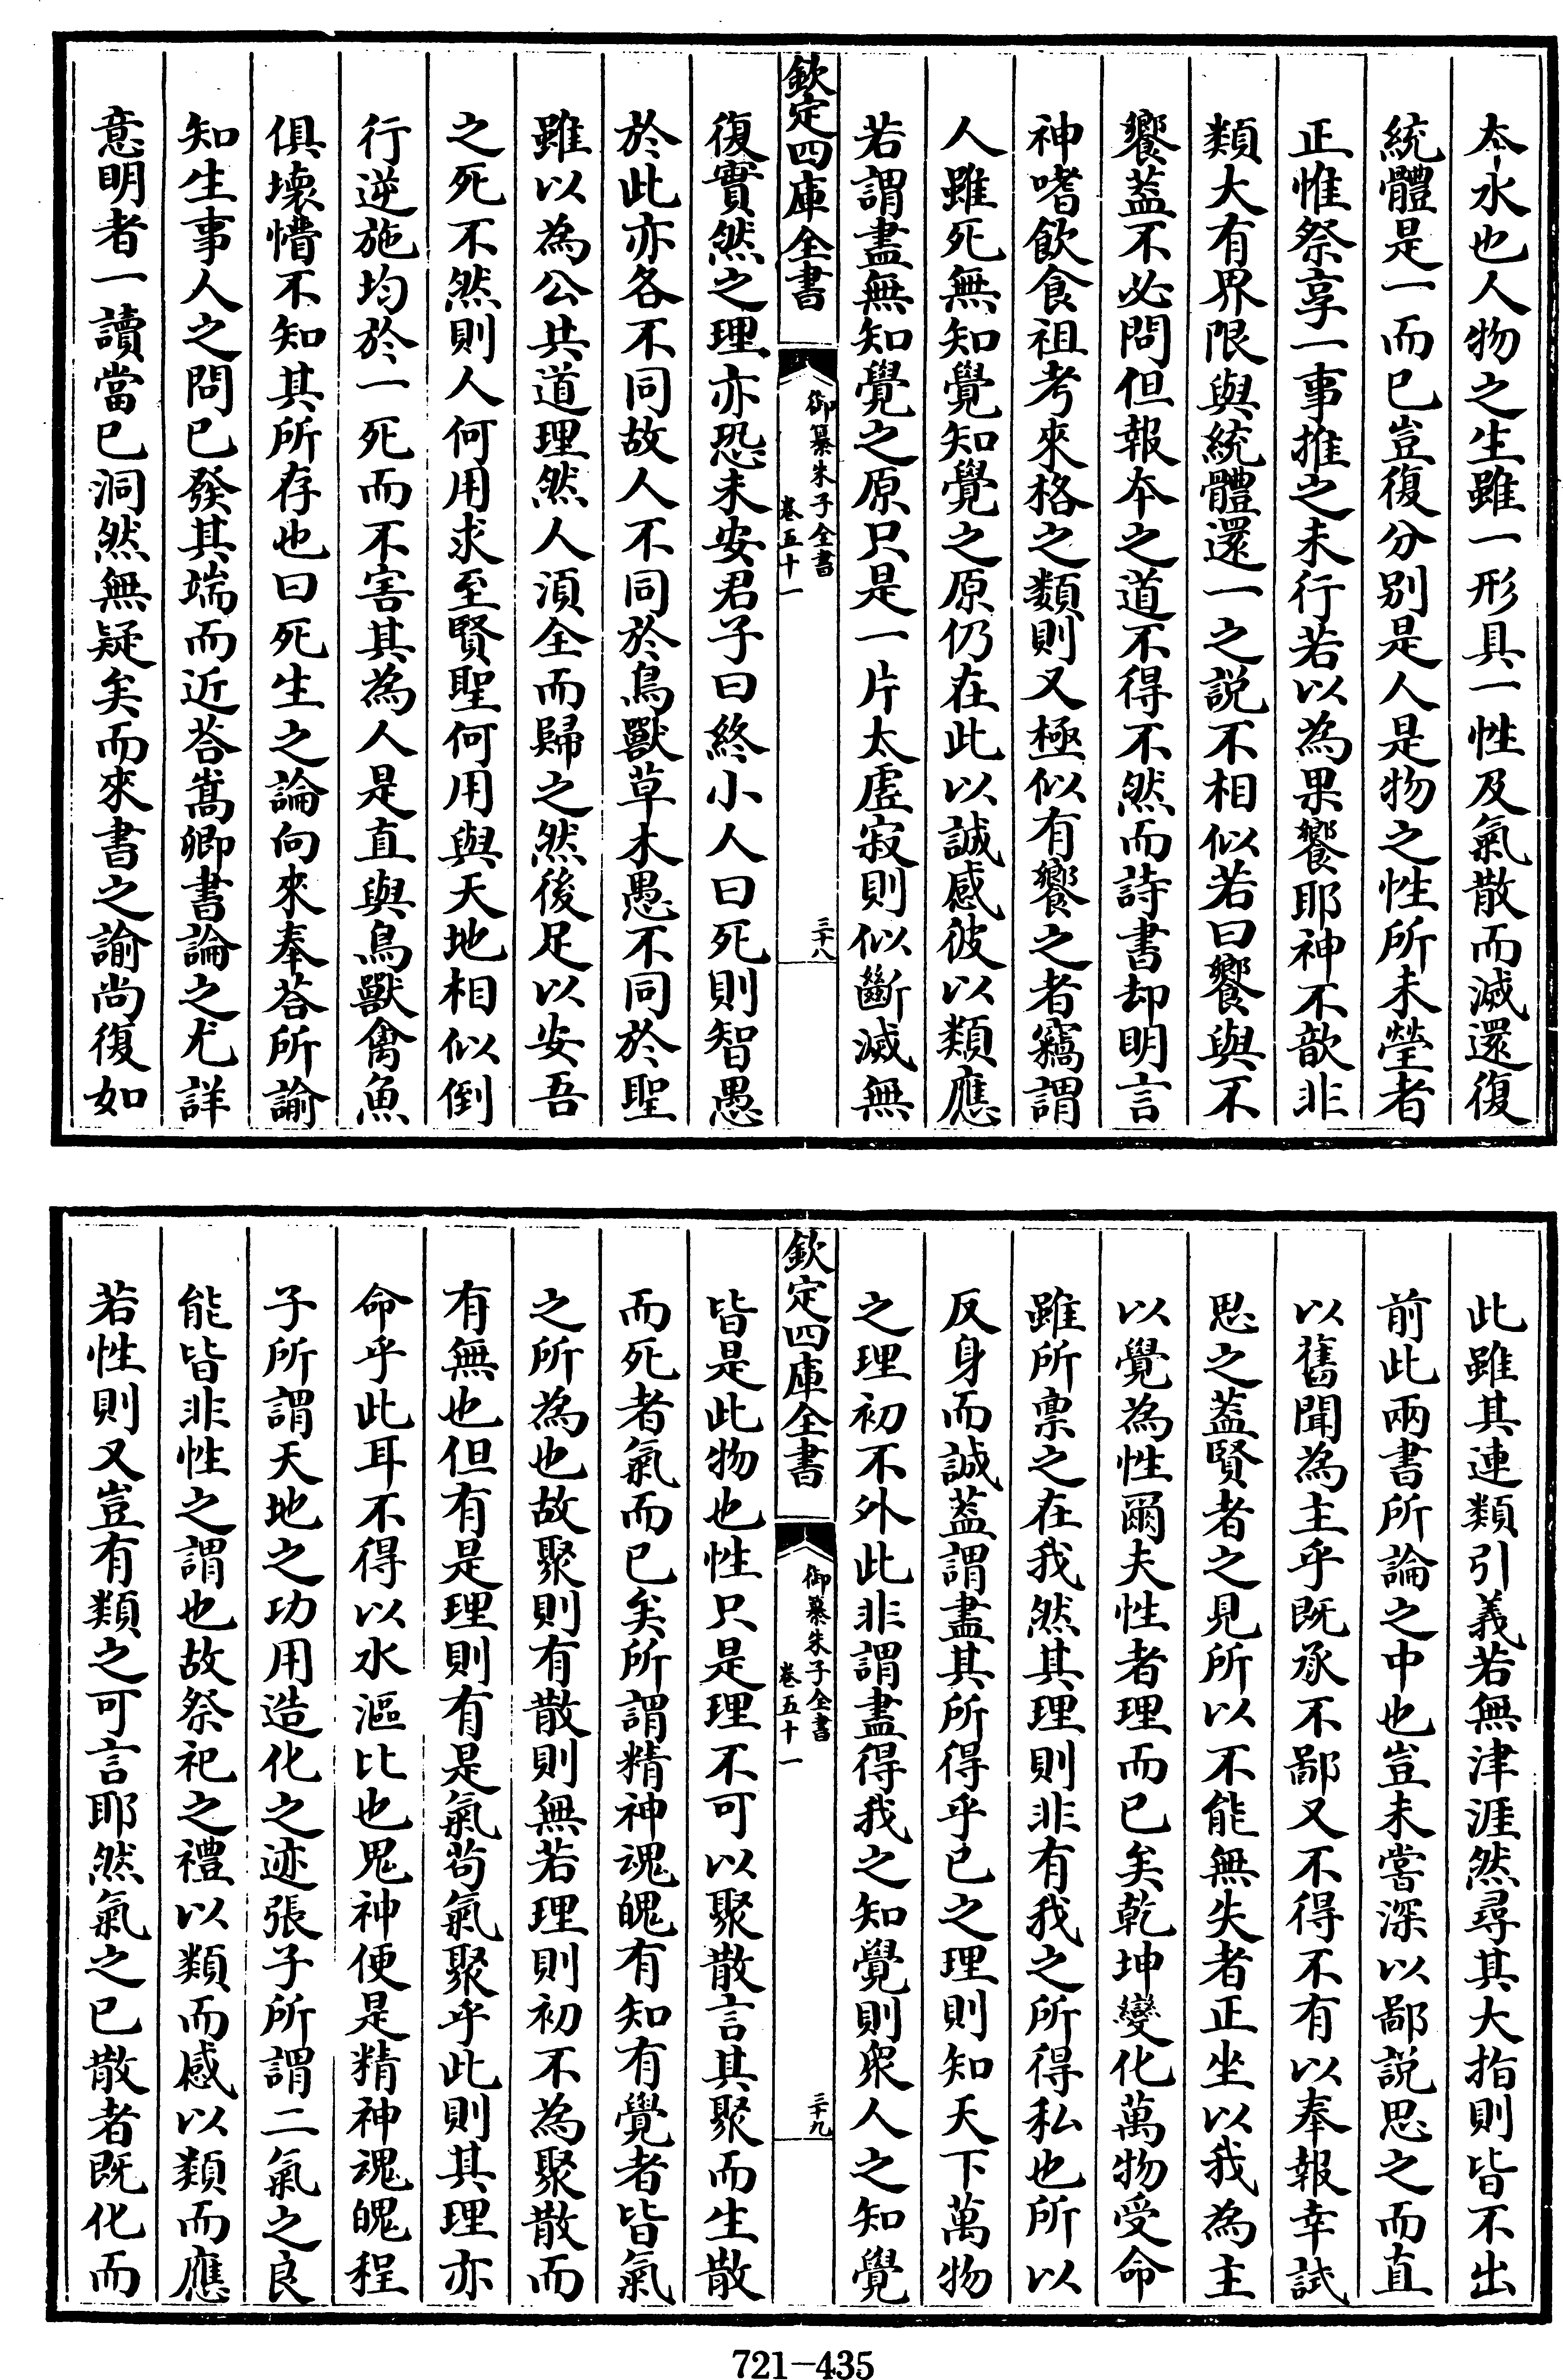 太水也人物之生雖一形具一性及氣散而滅還復
統體是一而已豈復分别是人是物之性所未瑩者
正惟祭享一事推之未行若以為果饗耶神不歆非
類大有界限與統體還一之説不相似若曰饗與不
饗葢不必問但報本之道不得不然而詩書却明言
神嗜飲食祖考來格之類則又極似有饗之者竊謂
人雖死無知覺知覺之原仍在此以誠感彼以類應
若謂盡無知覺之原只是一片太虛寂則似斷滅無
欽定四庫全書
御纂朱子全書
卷五十一
三十八
復實然之理亦恐未安君子曰終小人曰死則智愚
於此亦各不同故人不同於鳥獸草木愚不同於聖
雖以為公共道理然人須全而歸之然後足以安吾
之死不然則人何用求至賢聖何用與天地相似倒
行逆施均於一死而不害其為人是直與鳥獸禽魚
俱壞懵不知其所存也曰死生之論向來奉荅所諭
知生事人之問已發其端而近荅嵩卿書論之尤詳
意明者一讀當已洞然無疑矣而來書之諭尚復如
此雖其連類引義若無津涯然尋其大指則皆不出
前此兩書所論之中也豈未嘗深以鄙説思之而直
以舊聞為主乎既承不鄙又不得不有以奉報幸試
思之葢賢者之見所以不能無失者正坐以我為主
以覺為性爾夫性者理而已矣乾坤變化萬物受命
雖所禀之在我然其理則非有我之所得私也所以
反身而誠葢謂盡其所得乎已之理則知天下萬物
之理初不外此非謂盡得我之知覺則衆人之知覺
欽定四庫全書
御纂朱子全書
卷五十一
三十九
皆是此物也性只是理不可以聚散言其聚而生散
而死者氣而已矣所謂精神魂魄有知有覺者皆氣
之所為也故聚則有散則無若理則初不為聚散而
有無也但有是理則有是氣苟氣聚乎此則其理亦
命乎此耳不得以水漚比也鬼神便是精神魂魄程
子所謂天地之功用造化之迹張子所謂二氣之良
能皆非性之謂也故祭祀之禮以類而感以類而應
若性則又豈有類之可言耶然氣之已散者既化而
721—435